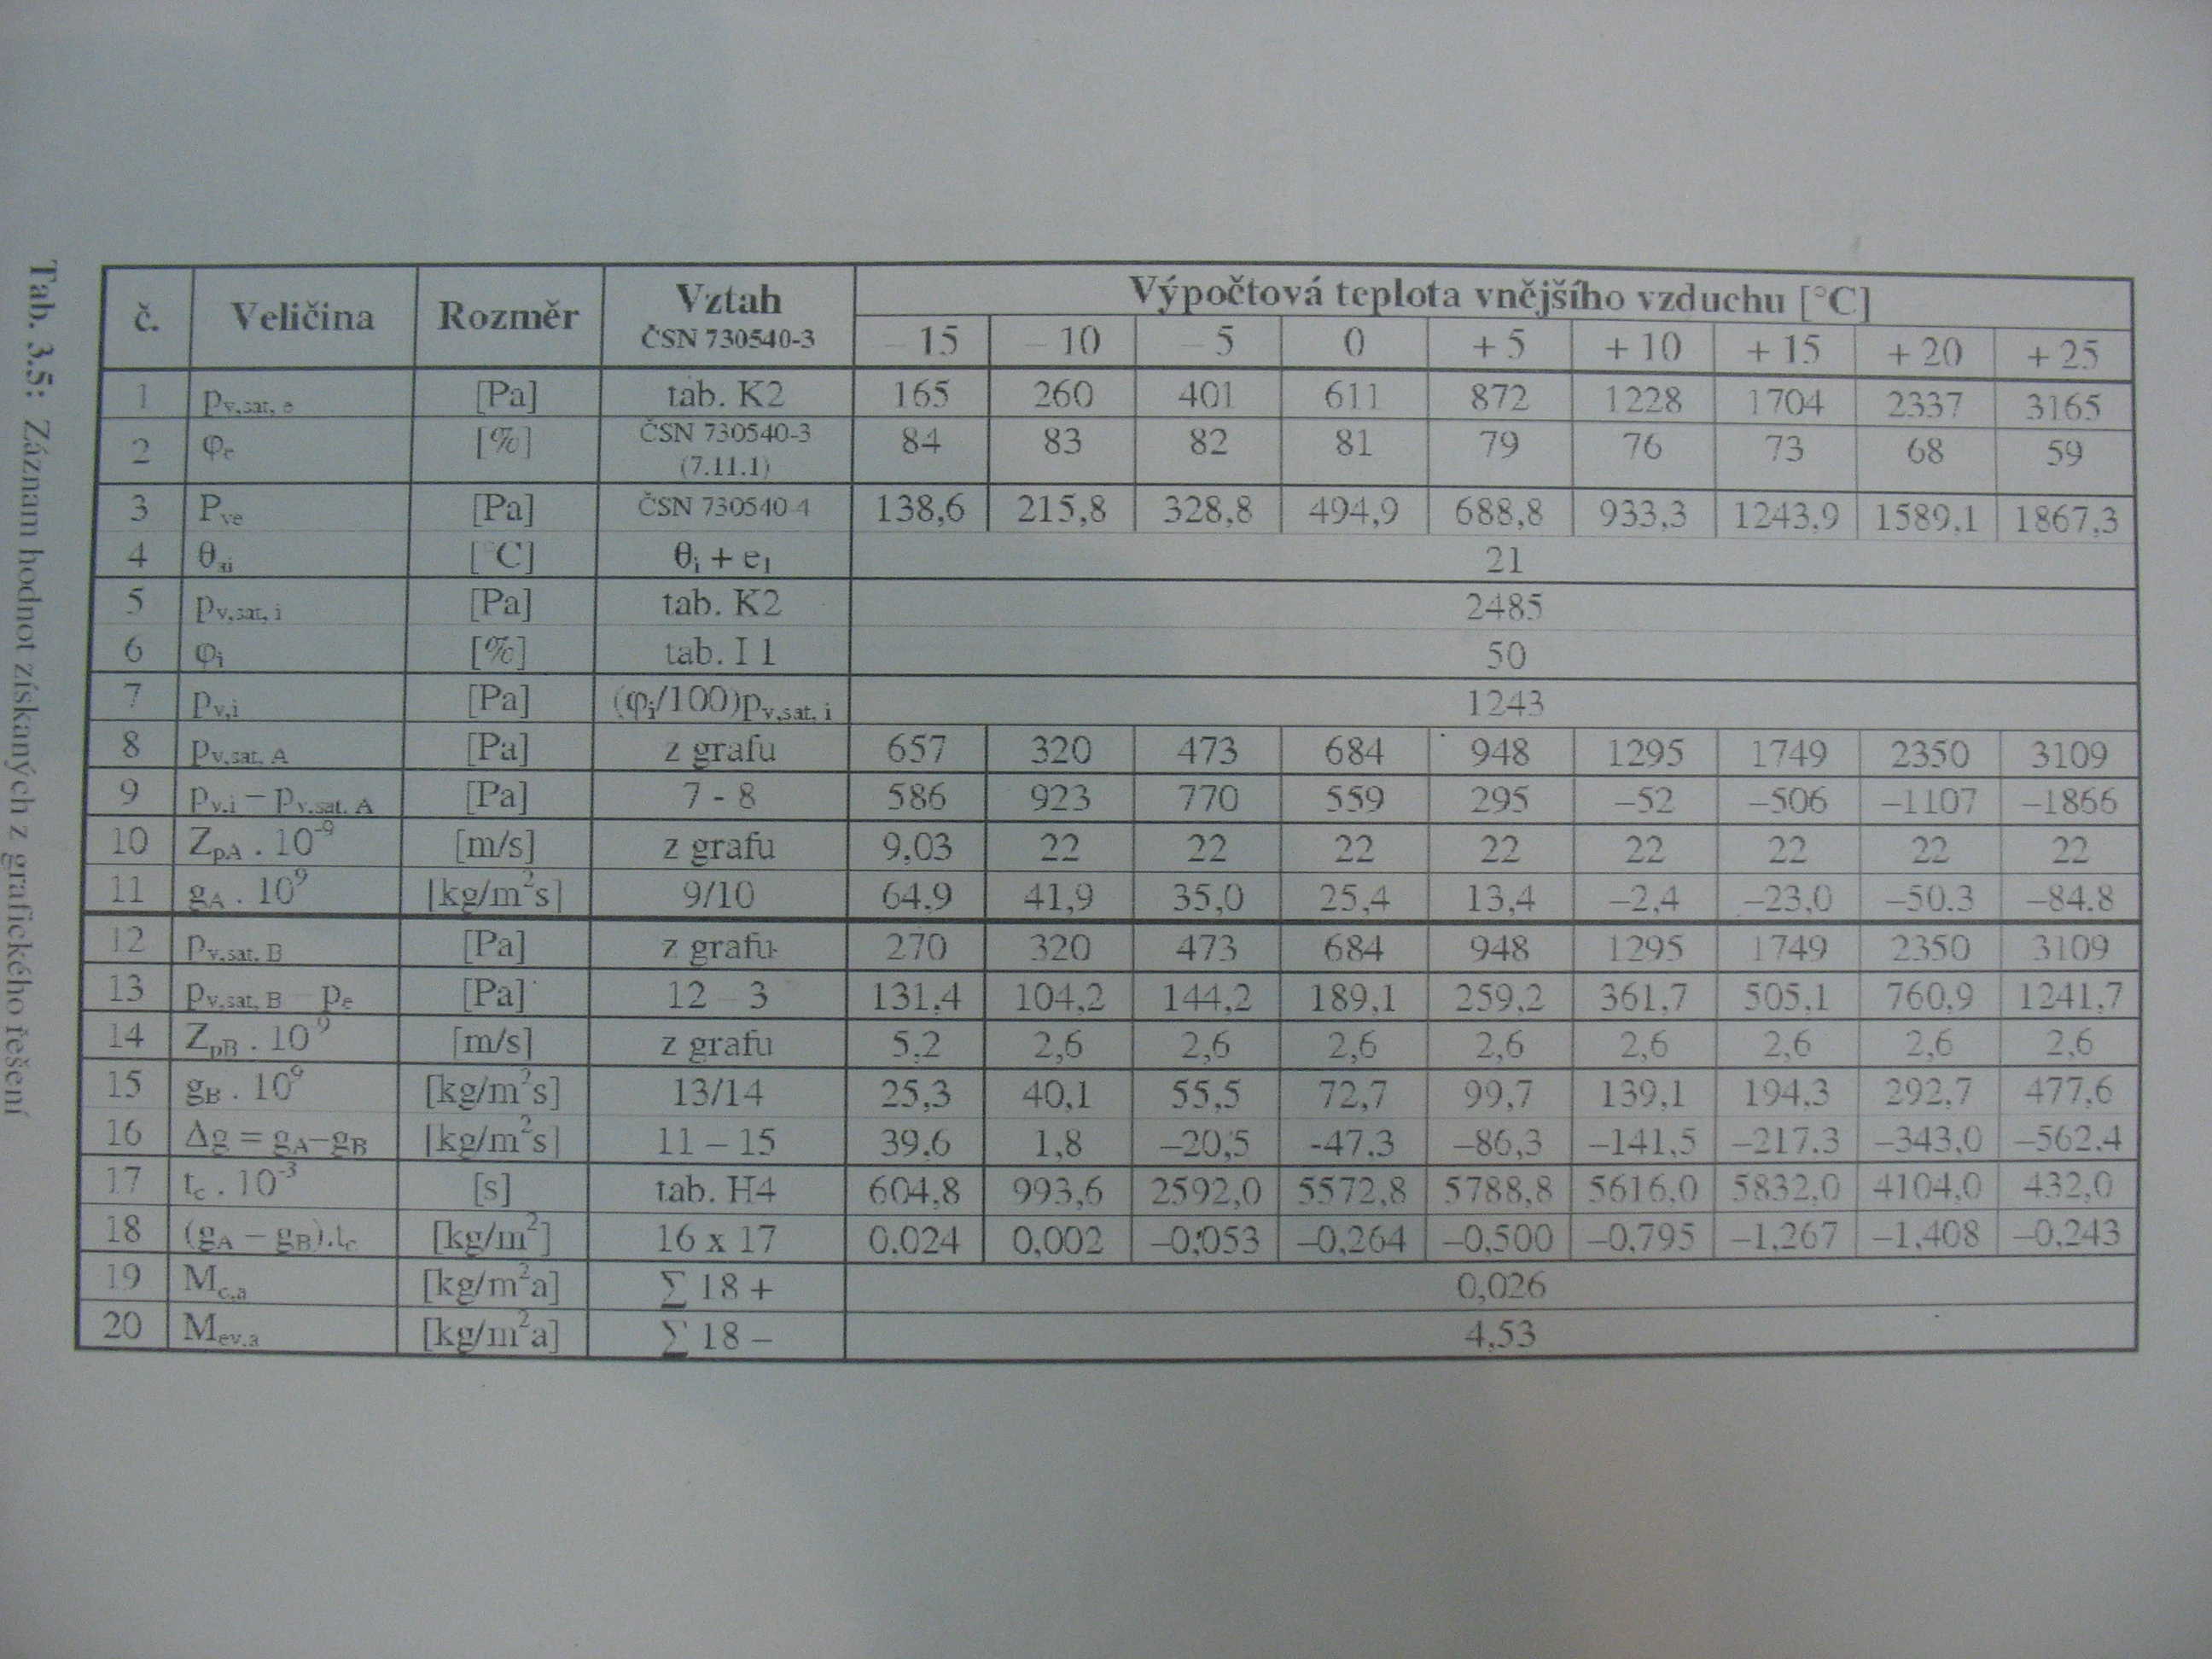 Tab. 3.5: Záznam hodnot získaných z grafického řešení
č. Veličina Rozměr Vztah ČSN 730540-3 Výpočtová teplota vnějšího vzduchu [°C]
– 15 – 10 – 5 0 + 5 + 10 + 15 + 20 + 25
1 pv,sat, e [Pa] tab. K2 165 260 401 611 872 1228 1704 2337 3165
2 φe [%] ČSN 730540-3 (7.11.1) 84 83 82 81 79 76 73 68 59
3 Pve [Pa] ČSN 730540-4 138,6 215,8 328,8 494,9 688,8 933,3 1243,9 1589,1 1867,3
4 θai [°C] θi + e1 21
5 pv,sat, i [Pa] tab. K2 2485
6 φi [%] tab. I 1 50
7 pv,i [Pa] (φi/100)pv,sat, i 1243
8 pv,sat, A [Pa] z grafu 657 320 473 684 948 1295 1749 2350 3109
9 pv,i – pv,sat, A [Pa] 7 - 8 586 923 770 559 295 –52 –506 –1107 –1866
10 ZpA . 10⁻⁹ [m/s] z grafu 9,03 22 22 22 22 22 22 22 22
11 gA . 10⁹ [kg/m²s] 9/10 64,9 41,9 35,0 25,4 13,4 –2,4 –23,0 –50,3 –84,8
12 pv,sat, B [Pa] z grafu 270 320 473 684 948 1295 1749 2350 3109
13 pv,sat, B – pe [Pa] 12 – 3 131,4 104,2 144,2 189,1 259,2 361,7 505,1 760,9 1241,7
14 ZpB . 10⁻⁹ [m/s] z grafu 5,2 2,6 2,6 2,6 2,6 2,6 2,6 2,6 2,6
15 gB . 10⁹ [kg/m²s] 13/14 25,3 40,1 55,5 72,7 99,7 139,1 194,3 292,7 477,6
16 Δg = gA–gB [kg/m²s] 11 – 15 39,6 1,8 –20,5 -47,3 –86,3 –141,5 –217,3 –343,0 –562,4
17 tc . 10⁻³ [s] tab. H4 604,8 993,6 2592,0 5572,8 5788,8 5616,0 5832,0 4104,0 432,0
18 (gA – gB).tc [kg/m²] 16 x 17 0,024 0,002 –0,053 –0,264 –0,500 –0,795 –1,267 –1,408 –0,243
19 Mc,a [kg/m²a] ∑ 18 + 0,026
20 Mev,a [kg/m²a] ∑ 18 – 4,53